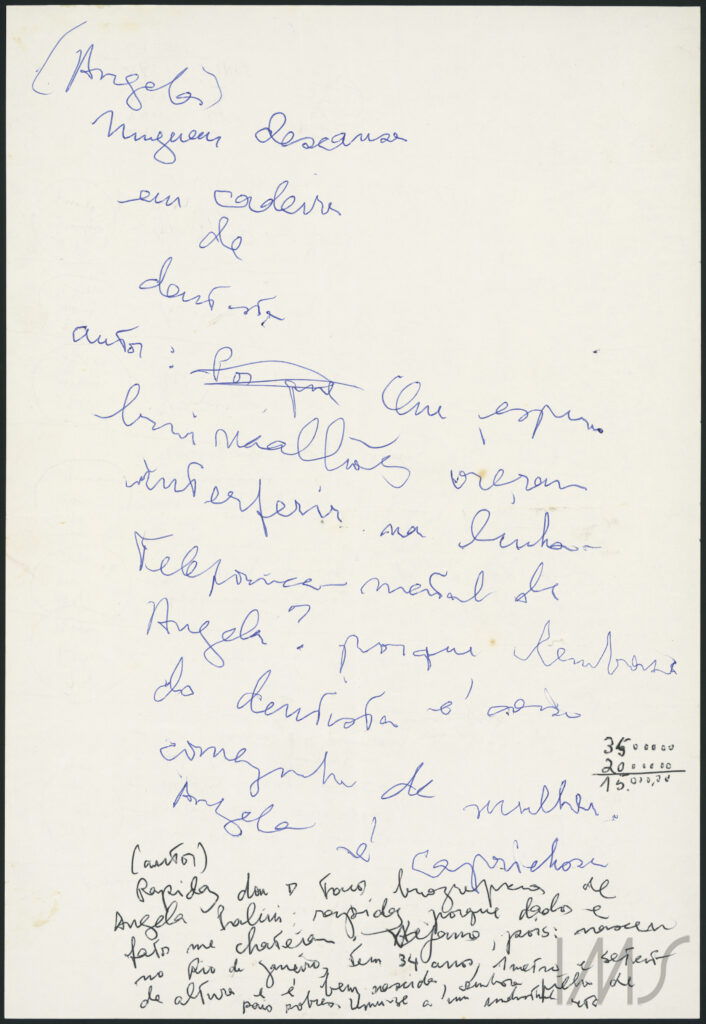 (Angela)
Ninguem descansa
em cadeira
de
dentista
autor: Por que Que espiri
brincalhões vieram
interferir na linha
Telefonica mental de
Angela? porque lembrar
do dentista é coisa
comezinha de mulher.
Angela é caprichosa
35000000
20000000
15.000,00
(autor)
Rapidos dou traços biograficos de
Angela Pralini: rapidos porque dados e
fato me chateiam. Vejamos, pois: nasceu
no Rio de Janeiro, tem 34 anos, 1 metro e setenta
de altura e é bem nascida, embora filha de
pais pobres. Uniu-se a um industrial
IMS